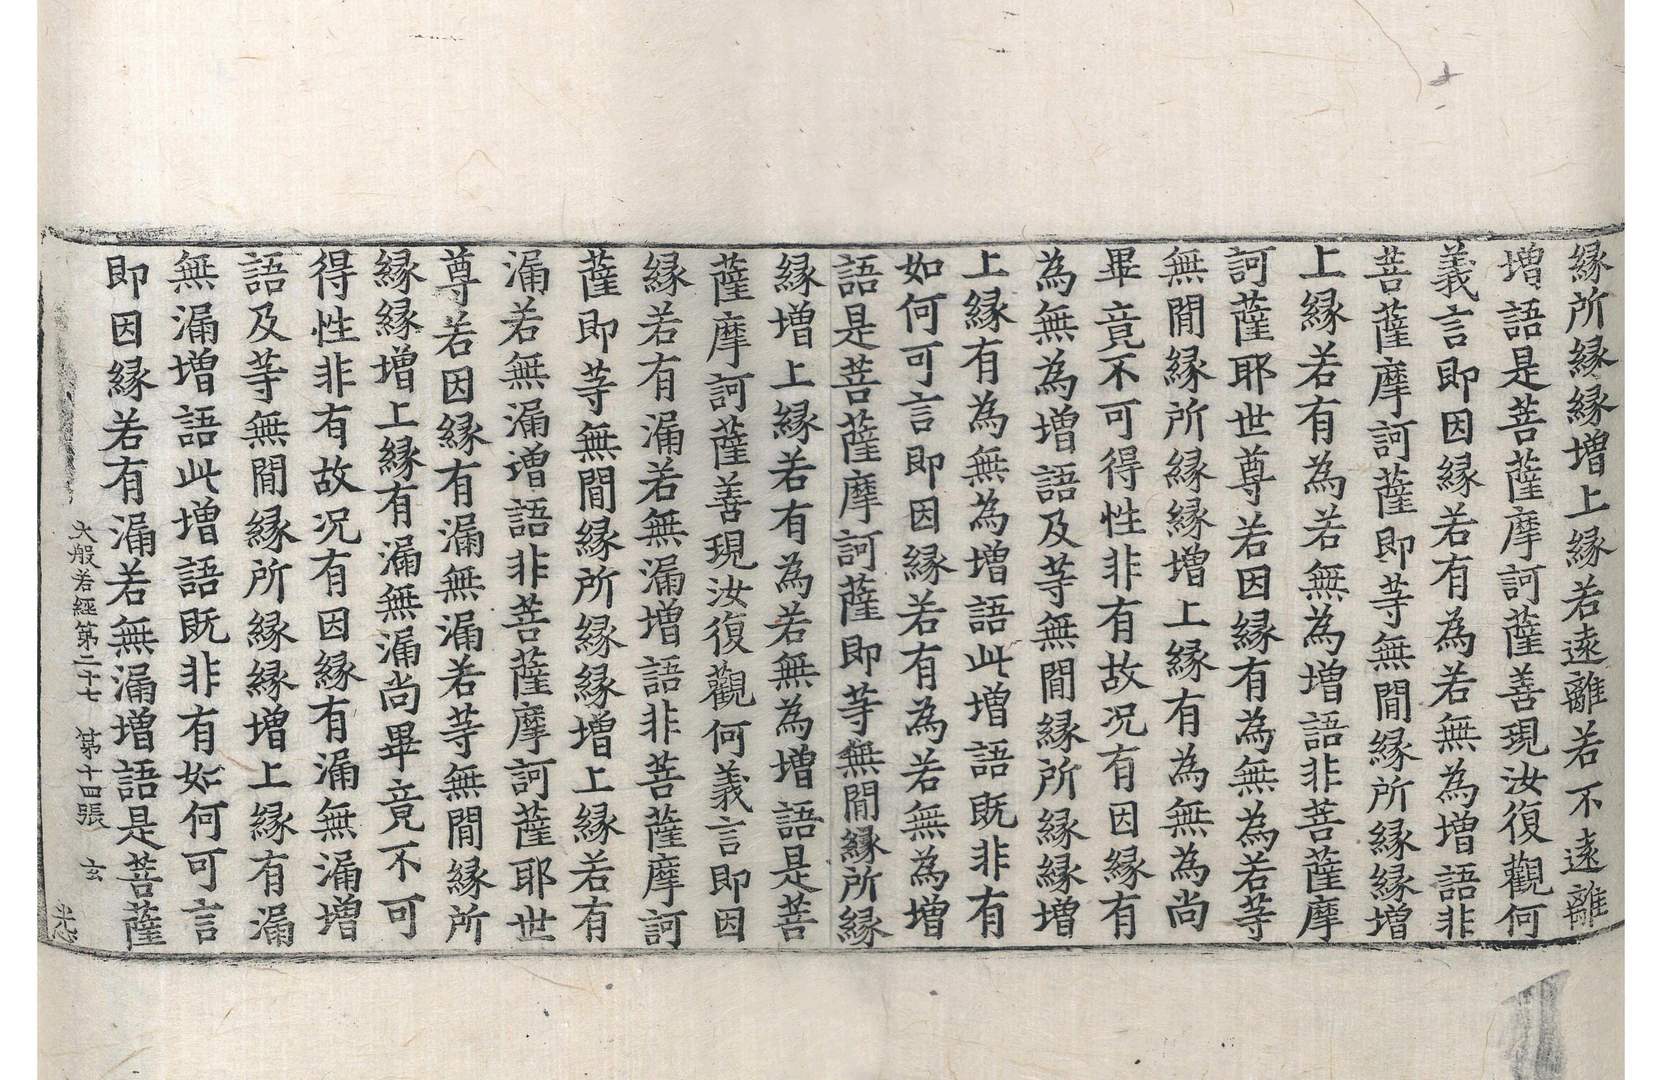 縁所縁縁増上縁若遠離若不遠離
増語是菩薩摩訶薩善現汝復觀何
義言即因縁若有為若無為増語非
菩薩摩訶薩即等無間縁所縁縁増
上縁若有為若無為増語非菩薩摩
訶薩耶世尊若因縁有為無為若等
無間縁所縁縁増上縁有為無為尚
畢竟不可得性非有故况有因縁有
為無為増語及等無間縁所縁縁増
上縁有為無為増語此増語既非有
如何可言即因縁若有為若無為増
語是菩薩摩訶薩即等無間縁所縁
縁増上縁若有為若無為増語是菩
薩摩訶薩善現汝復觀何義言即因
縁若有漏若無漏増語非菩薩摩訶
薩即等無間縁所縁縁増上縁若有
漏若無漏増語非菩薩摩訶薩耶世
尊若因縁有漏無漏若等無間縁所
縁縁増上縁有漏無漏尚畢竟不可
得性非有故况有因縁有漏無漏増
語及等無間縁所縁縁増上縁有漏
無漏増語此増語既非有如何可言
即因縁若有漏若無漏増語是菩薩
大般若經第二十七 第十四張 玄